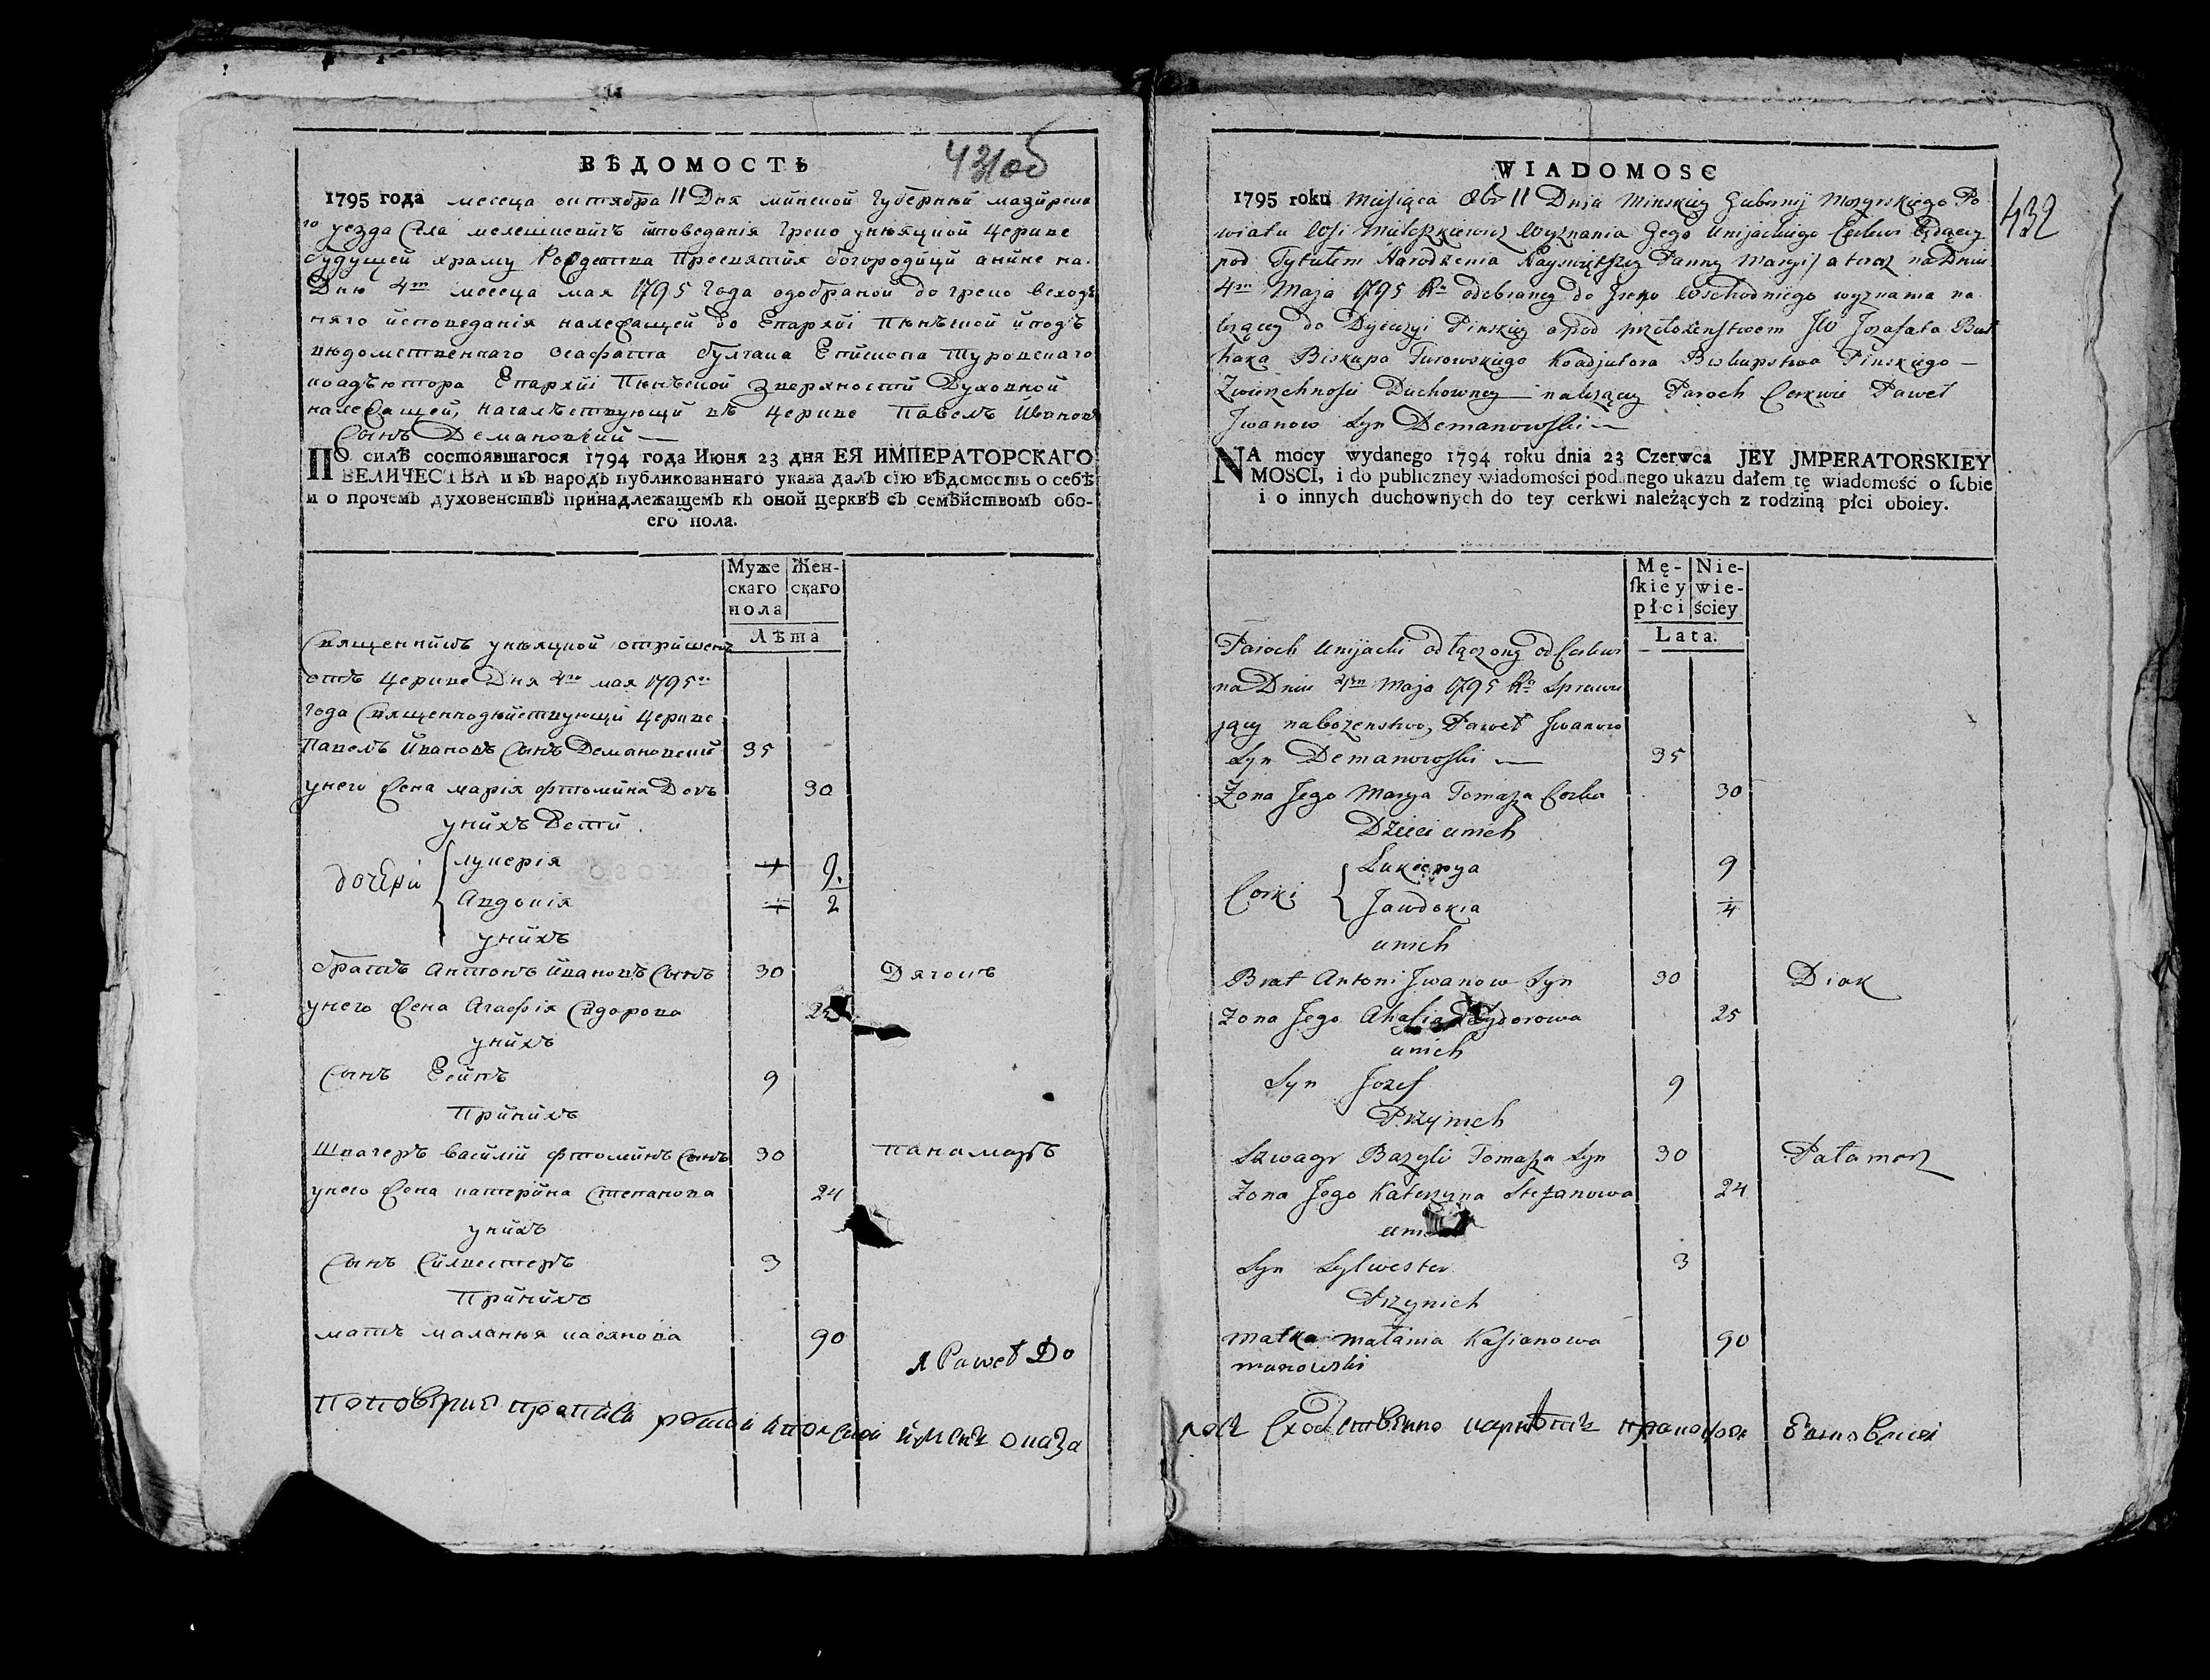 ВѢДОМОСТЬ
431об
1795 года месеца октября 11 Дня минской Губернии мазирска
го уезда Села мелешкевичъ исповеданія Греко унѣяцкой Церкве
будущей храму Рождества Пресвятія богородици а нине на
Дню 4го месеца мая 1795 Года одобраной до греко всход
няго исповеданія належащей до Епархіи Пинѣской и подъ
ведомственнаго Осафата булгака Епископа Туровскаго
коадъютора Епархіи Пинѣской Зверхности Духовной
належащей, началствующій въ Церкве Павелъ Иванов
Сынъ Демановский
ПО силѣ состоявшагося 1794 года Июня 23 дня ЕЯ ИМПЕРАТОРСКАГО
ВЕЛИЧЕСТВА и въ народъ публикованнаго указа далъ сію вѣдомость о себѣ
и о прочемъ духовенствѣ принадлежащемъ къ оной церквѣ съ семѣйствомъ обо-
его пола.
Муже Жен-
скаго скаго
пола
Лѣта
Священникъ унѣяцкой отришен
отъ Церкве Дня 4го мая 1795го
Года Священнодѣйствующій Церкве
Павелъ Ивановъ Сынъ Демановский 35
у него Жена марія фтомина Дочь 30
у нихъ Дети
дочери Лукерія 9
Авдокія 2
у нихъ
братъ Антонъ Ивановъ Сынъ 30 Дячокъ
у него Жена Агафія Сидорова 25
у нихъ
Сынъ Есипъ 9
При нихъ
Швагеръ Василій фтоминъ Сынъ 30 панамаръ
у него Жена катерина Степанова 24
у нихъ
Сынъ Силвестеръ 3
При нихъ
мать маланья касянова 90
Я Paweł De
WIADOMOSC
432
1795 roku Miesiąca 8br 11 Dnia Minskiey Gubernij Mozyrskiego Po
wiatu Wsi Mileszkiewicz Wyznania Grego Unijackiego Cerkwi będącey
pod Tytułem Narodzenia Nayswiętszey Panny Maryi a teraz na Dniu
4m Maja 1795 Ru odebraney do Greko Wschodniego wyznania na
lezącey do Dyecezyi Pinskiey a pod przełozenstwem JW Jozafata Buł
haka Biskupa Turowskiego Koadjutora Biskupstwa Pinskiego
Zwierzchnosci Duchowney nalezący Paroch Cerkwie Paweł
Jwanow Syn Demanowski
NA mocy wydanego 1794 roku dnia 23 Czerwca JEY JMPERATORSKIEY
MOSCI, i do publiczney wiadomości podanego ukazu dałem tę wiadomość o sobie
i o innych duchownych do tey cerkwi należących z rodziną płci oboiey.
Mę- Nie-
skiey wie-
płci ściey
Lata.
Paroch Unijacki odłączony od Cerkwi
na Dniu 4m Maja 1795 Ru Sprawu
jący nabozenstwo, Paweł Jwanow
Syn Demanowski 35
Zona Jego Marya Tomasza Corka 30
Dzieci u nich
Corki Lukierya 9
Jawdokia 4
u nich
Brat Antoni Jwanow Syn 30 Diak
Zona Jego Ahafia Sydorowa 25
u nich
Syn Jozef 9
Przy nich
Szwagr Bazyli Tomasza Syn 30 Pałamarz
Zona Jego Katerzyna Stefanowa 24
Syn Sylwester 3
Przy nich
Matka Małania Kasianowa 90
manowski